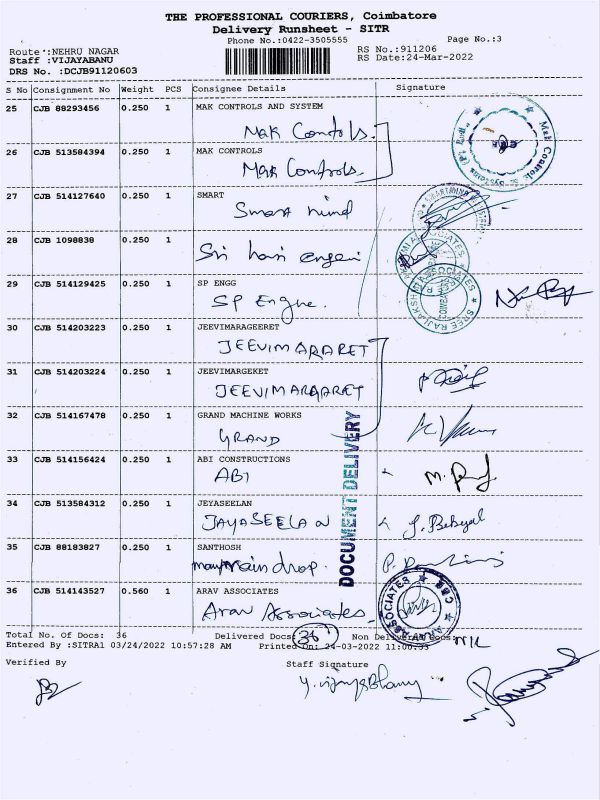 THE PROFESSIONAL COURIERS, Coimbatore
Delivery Runsheet - SITR
Phone No.:0422-3505555
Page No.:3
Route :NEHRU NAGAR
Staff :VIJAYABANU
DRS No. :DCJB91120603
RS No.:911206
RS Date:24-Mar-2022
S No Consignment No Weight PCS Consignee Details Signature
25 CJB 88293456 0.250 1 MAK CONTROLS AND SYSTEM
Mak Controls.
26 CJB 513584394 0.250 1 MAK CONTROLS
Mak Controls.
27 CJB 514127640 0.250 1 SMART
Smart mind
28 CJB 1098838 0.250 1
Sri hari engen
29 CJB 514129425 0.250 1 SP ENGG
SP Engne.
30 CJB 514203223 0.250 1 JEEVIMARAGEERET
JEEVIMARARET
31 CJB 514203224 0.250 1 JEEVIMARGEKET
JEEVIMARGARET
32 CJB 514167478 0.250 1 GRAND MACHINE WORKS
GRAND
33 CJB 514156424 0.250 1 ABI CONSTRUCTIONS
ABI
34 CJB 513584312 0.250 1 JEYASEELAN
JAYASEELAN
35 CJB 88183827 0.250 1 SANTHOSH
drop.
36 CJB 514143527 0.560 1 ARAV ASSOCIATES
Arav Associates
DOCUMENT DELIVERY
Total No. Of Docs: 36 Delivered Docs: 36 Non Delivered Docs: NIL
Entered By :SITRA1 03/24/2022 10:57:28 AM Printed On: 24-03-2022 11:00:33
Verified By Staff Signature